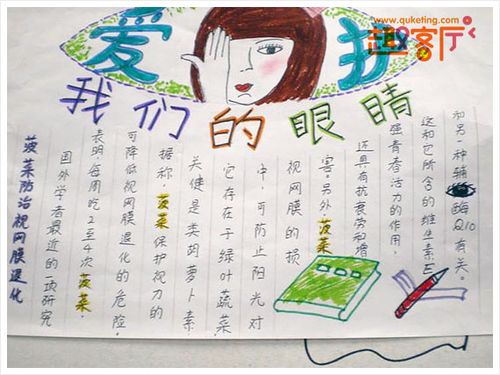 www.quketing.com
趣客厅
爱护
我们的眼睛
菠菜防治视网膜退化
国外学者最近的一项研究
表明,每周吃2至4次菠菜,
可降低视网膜退化的危险.
据称,菠菜保护视力的
关健是类胡萝卜素,
它存在于绿叶蔬菜
中,可防止阳光对
视网膜的损
害.另外,菠菜
还具有抗衰劳和增
强青春活力的作用,
这和它所含的维生素E
和另一种辅酶Q10有关。